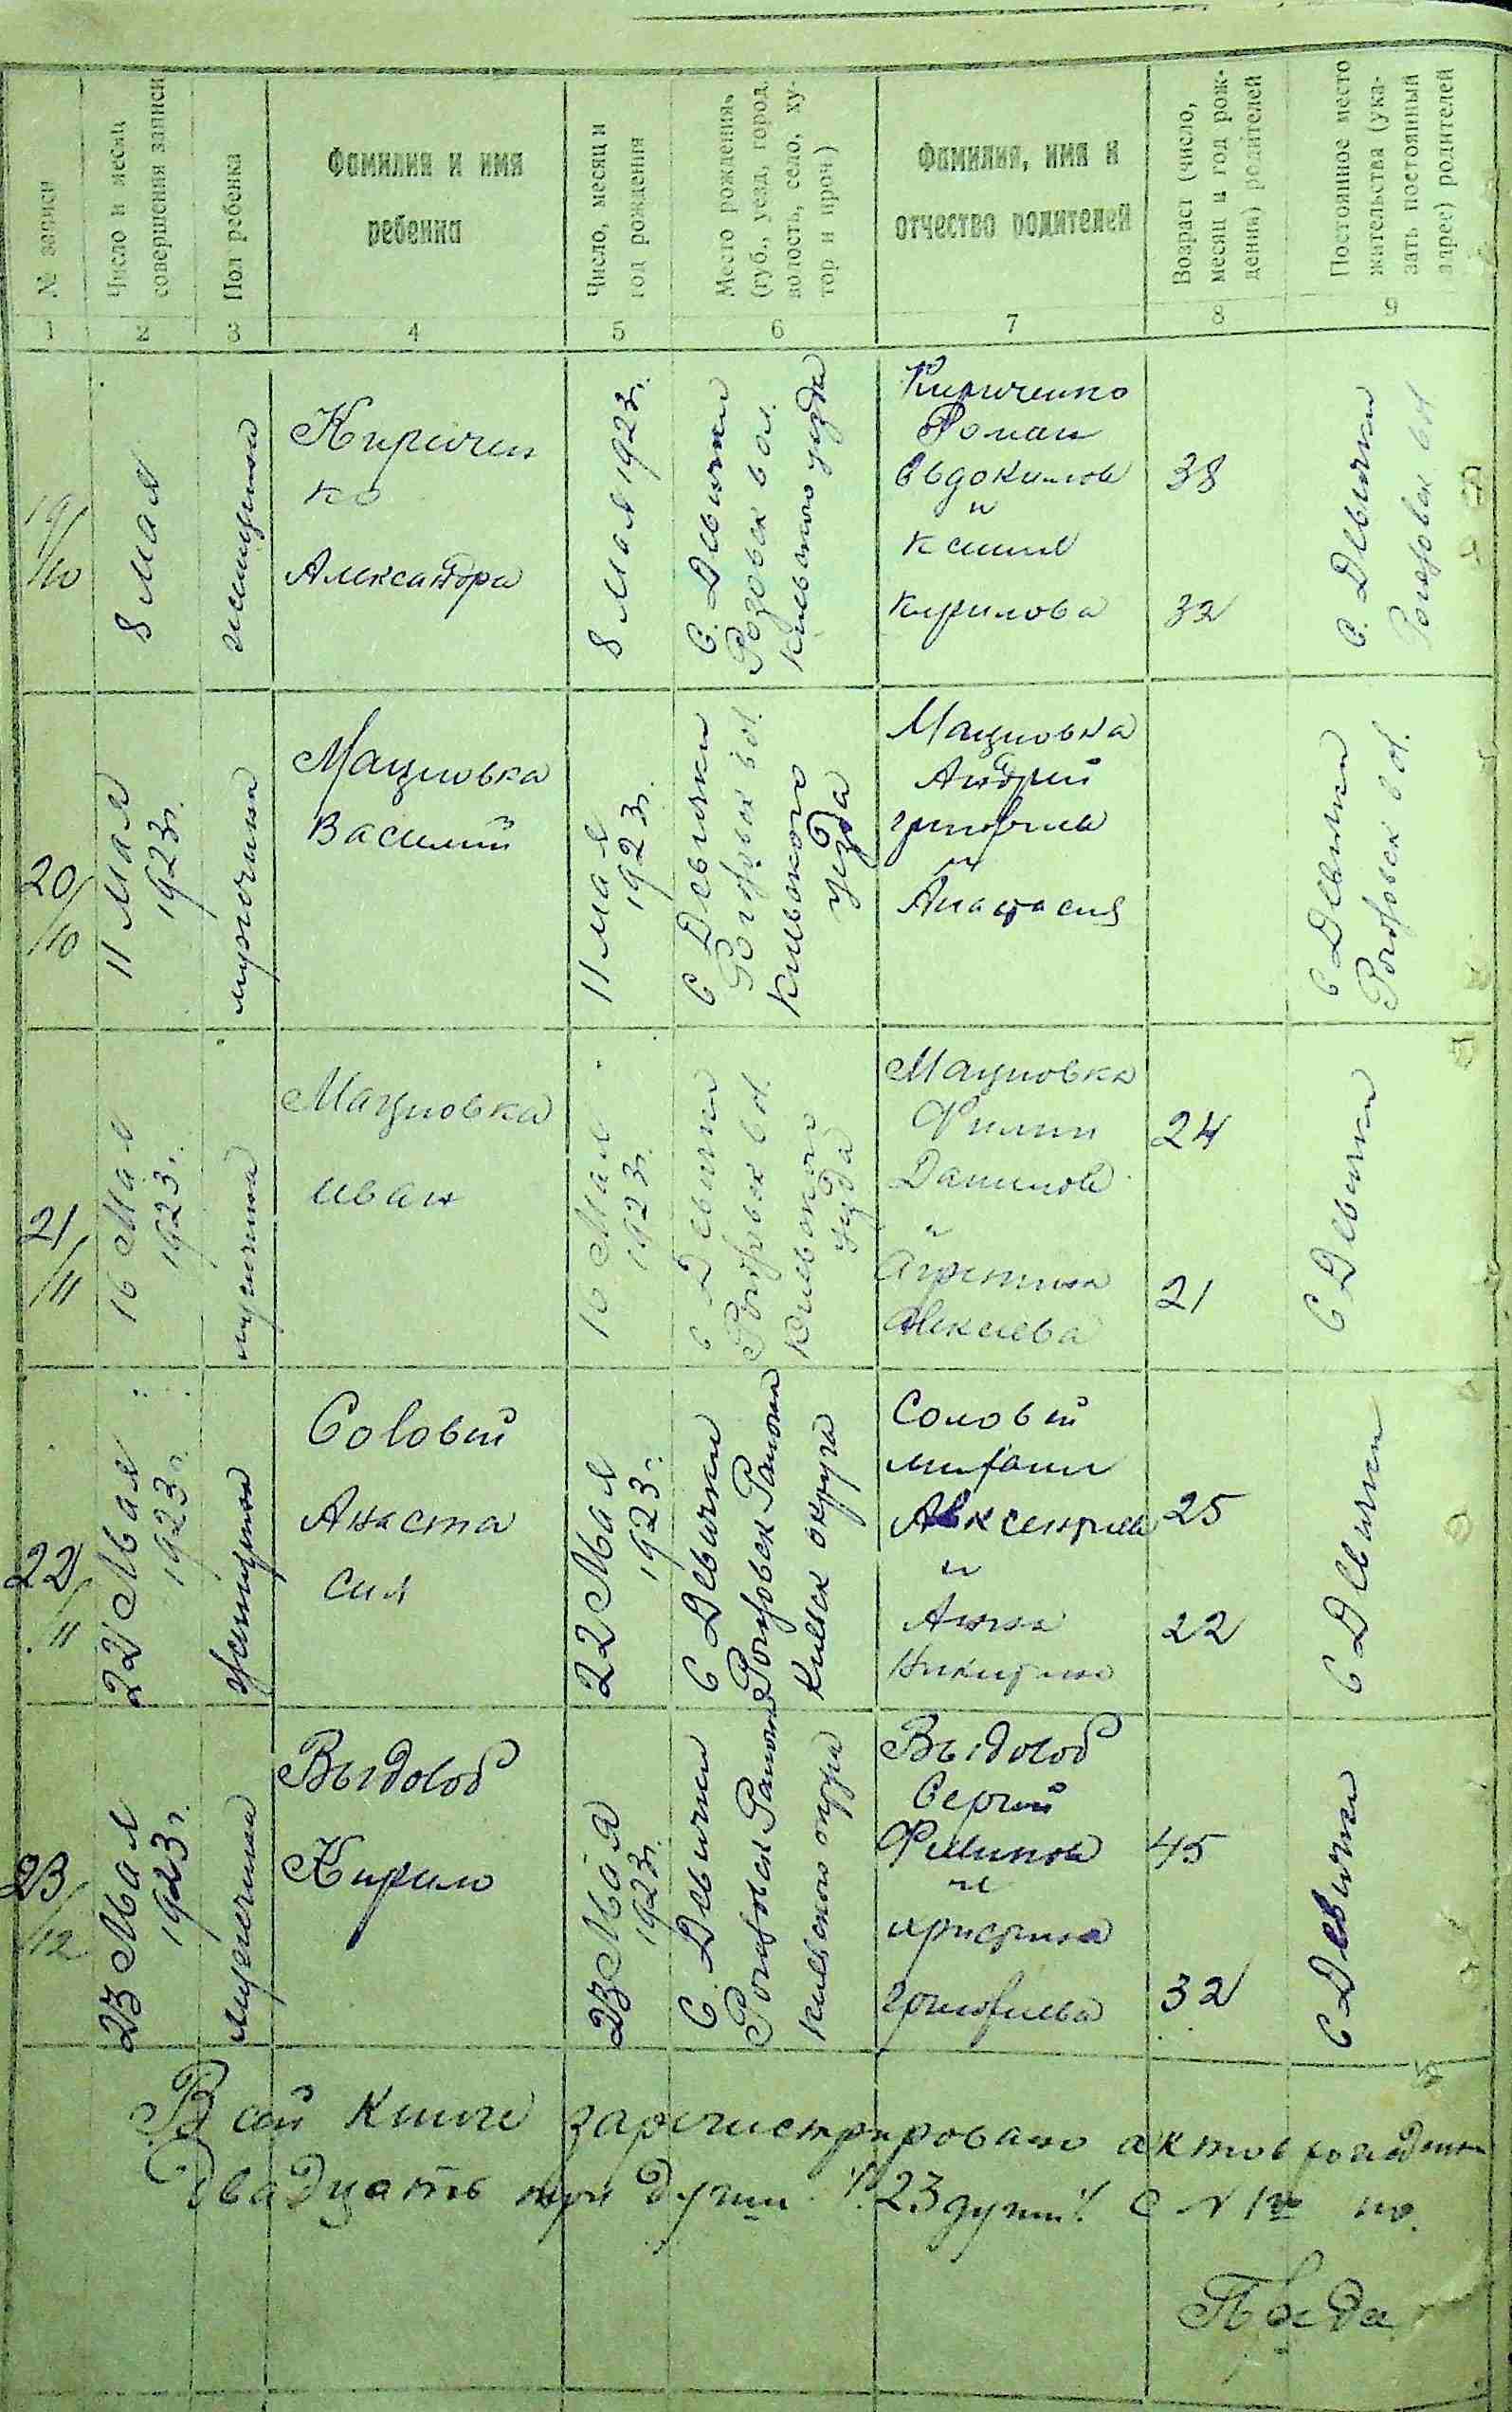 № записи
Число и месяц
совершения записи
Пол ребенка
Фамилия и имя
ребенка
Число, месяц и
год рождения
Место рождения
(губ., уезд, город,
волость, село, ху-
тор и проч)
Фамилия, имя и
отчество родителей
Возраст (число,
месяц и год рож-
дения) родителей
Постоянное место
жительства (ука-
зать постоянный
адрес) родителей
1 2 3 4 5 6 7 8 9
19/10
8 мая
женщина
Киричен
ко
Александра
8 мая 1923г.
С. Девички
вол.
уезда
Кириченко
Роман
Евдокимов
и
Кирилова
38
32
С. Девички
вол
20/10
11 мая
1923г.
мужчина
Мацковка
Василий
11 мая
1923г.
С Девички
вол.
Киевского
уезда
Мацковка
Андрий
и
Анастасия
С Девички
вол.
21/11
16 Мая
1923г.
мужчина
Мацковка
иван
16 Мая
1923г.
С Девички
вол.
Киевского
уезда
Мацковка
Филип
Данилов
и
Алексеева
24
21
С Девички
22/11
22 Мая
1923г.
женщина
Соловей
Анаста
сия
22 Мая
1923г.
С Девички
Района
Киевск округа
Соловей
и
Анна
25
22
С Девички
23/12
23 Мая
1923г.
мужчина
Выдолоб
Кирило
23 Мая
1923г.
С. Девички
Района
Киевского округа
Выдолоб
Сергий
Филипов
и
христина
45
32
С Девички
В сей книге зарегистрировано актов рождения
Двадцать три души /23 души/ с № 1го по